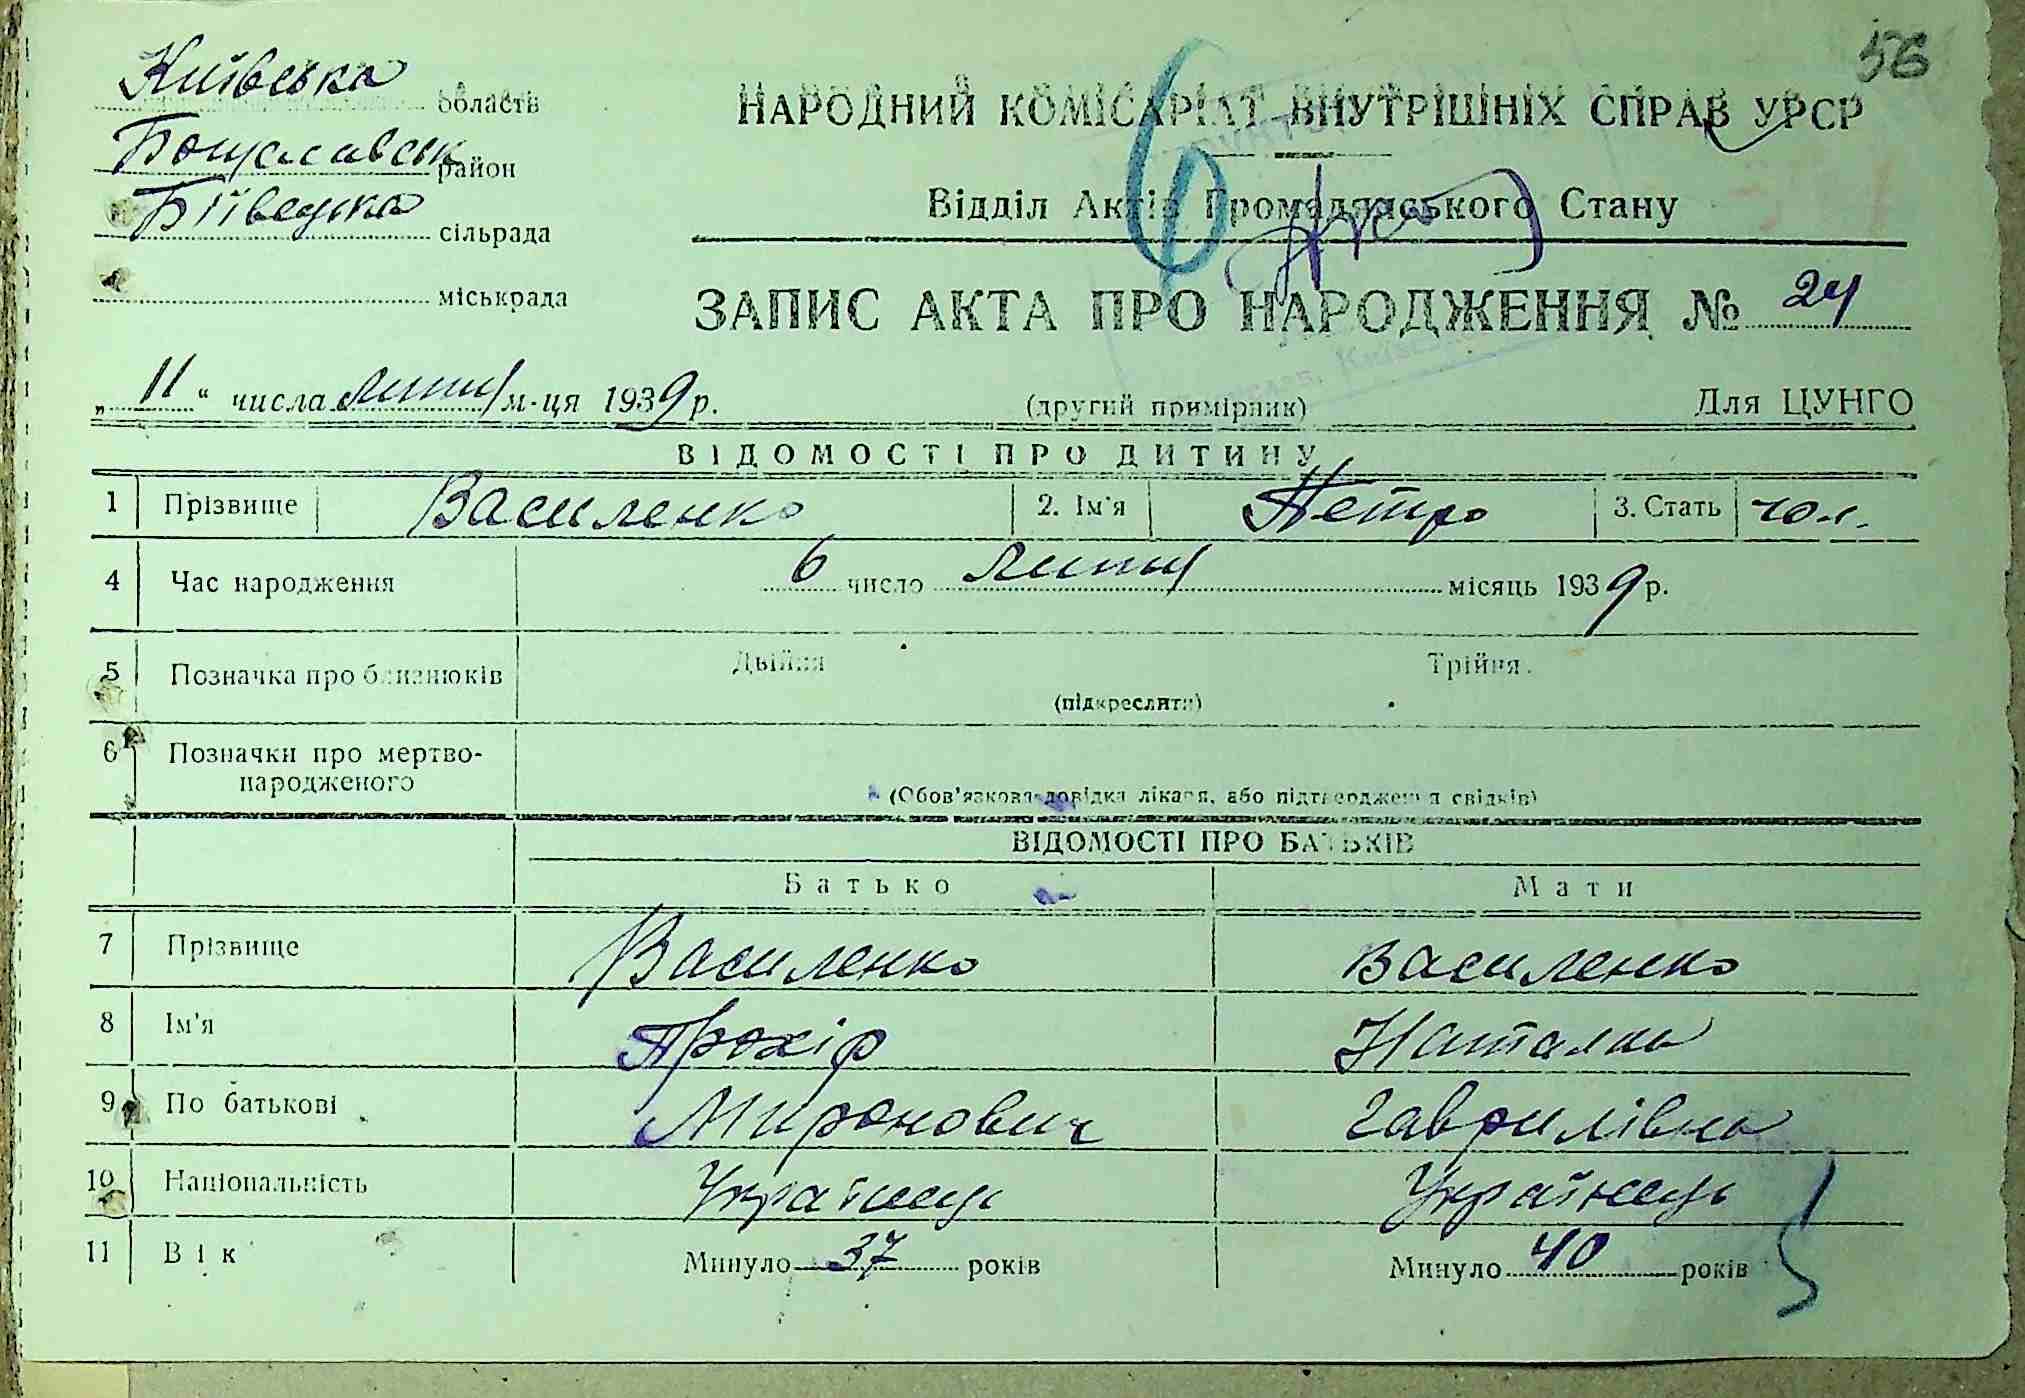 56
Київська область
Богуславськ район
Біївецька сільрада
міськрада
НАРОДНИЙ КОМІСАРІАТ ВНУТРІШНІХ СПРАВ УРСР
Відділ Актів Громадянського Стану
ЗАПИС АКТА ПРО НАРОДЖЕННЯ № 24
„11“ числа липня м-ця 1939 р. (другий примірник) Для ЦУНГО
ВІДОМОСТІ ПРО ДИТИНУ
1 Прізвище Василенко 2. Ім'я Петро 3. Стать чол.
4 Час народження 6 число липня місяць 1939 р.
5 Позначка про близнюків Двійня Трійня.
(підкреслити)
6 Позначки про мертво-
народженого
(Обов'язкова довідка лікаря, або підтвердження свідків)
ВІДОМОСТІ ПРО БАТЬКІВ
Батько Мати
7 Прізвище Василенко Василенко
8 Ім'я Прохір Наталка
9 По батькові Миронович Гаврилівна
10 Національність Українець Українець
11 Вік Минуло 37 років Минуло 40 років